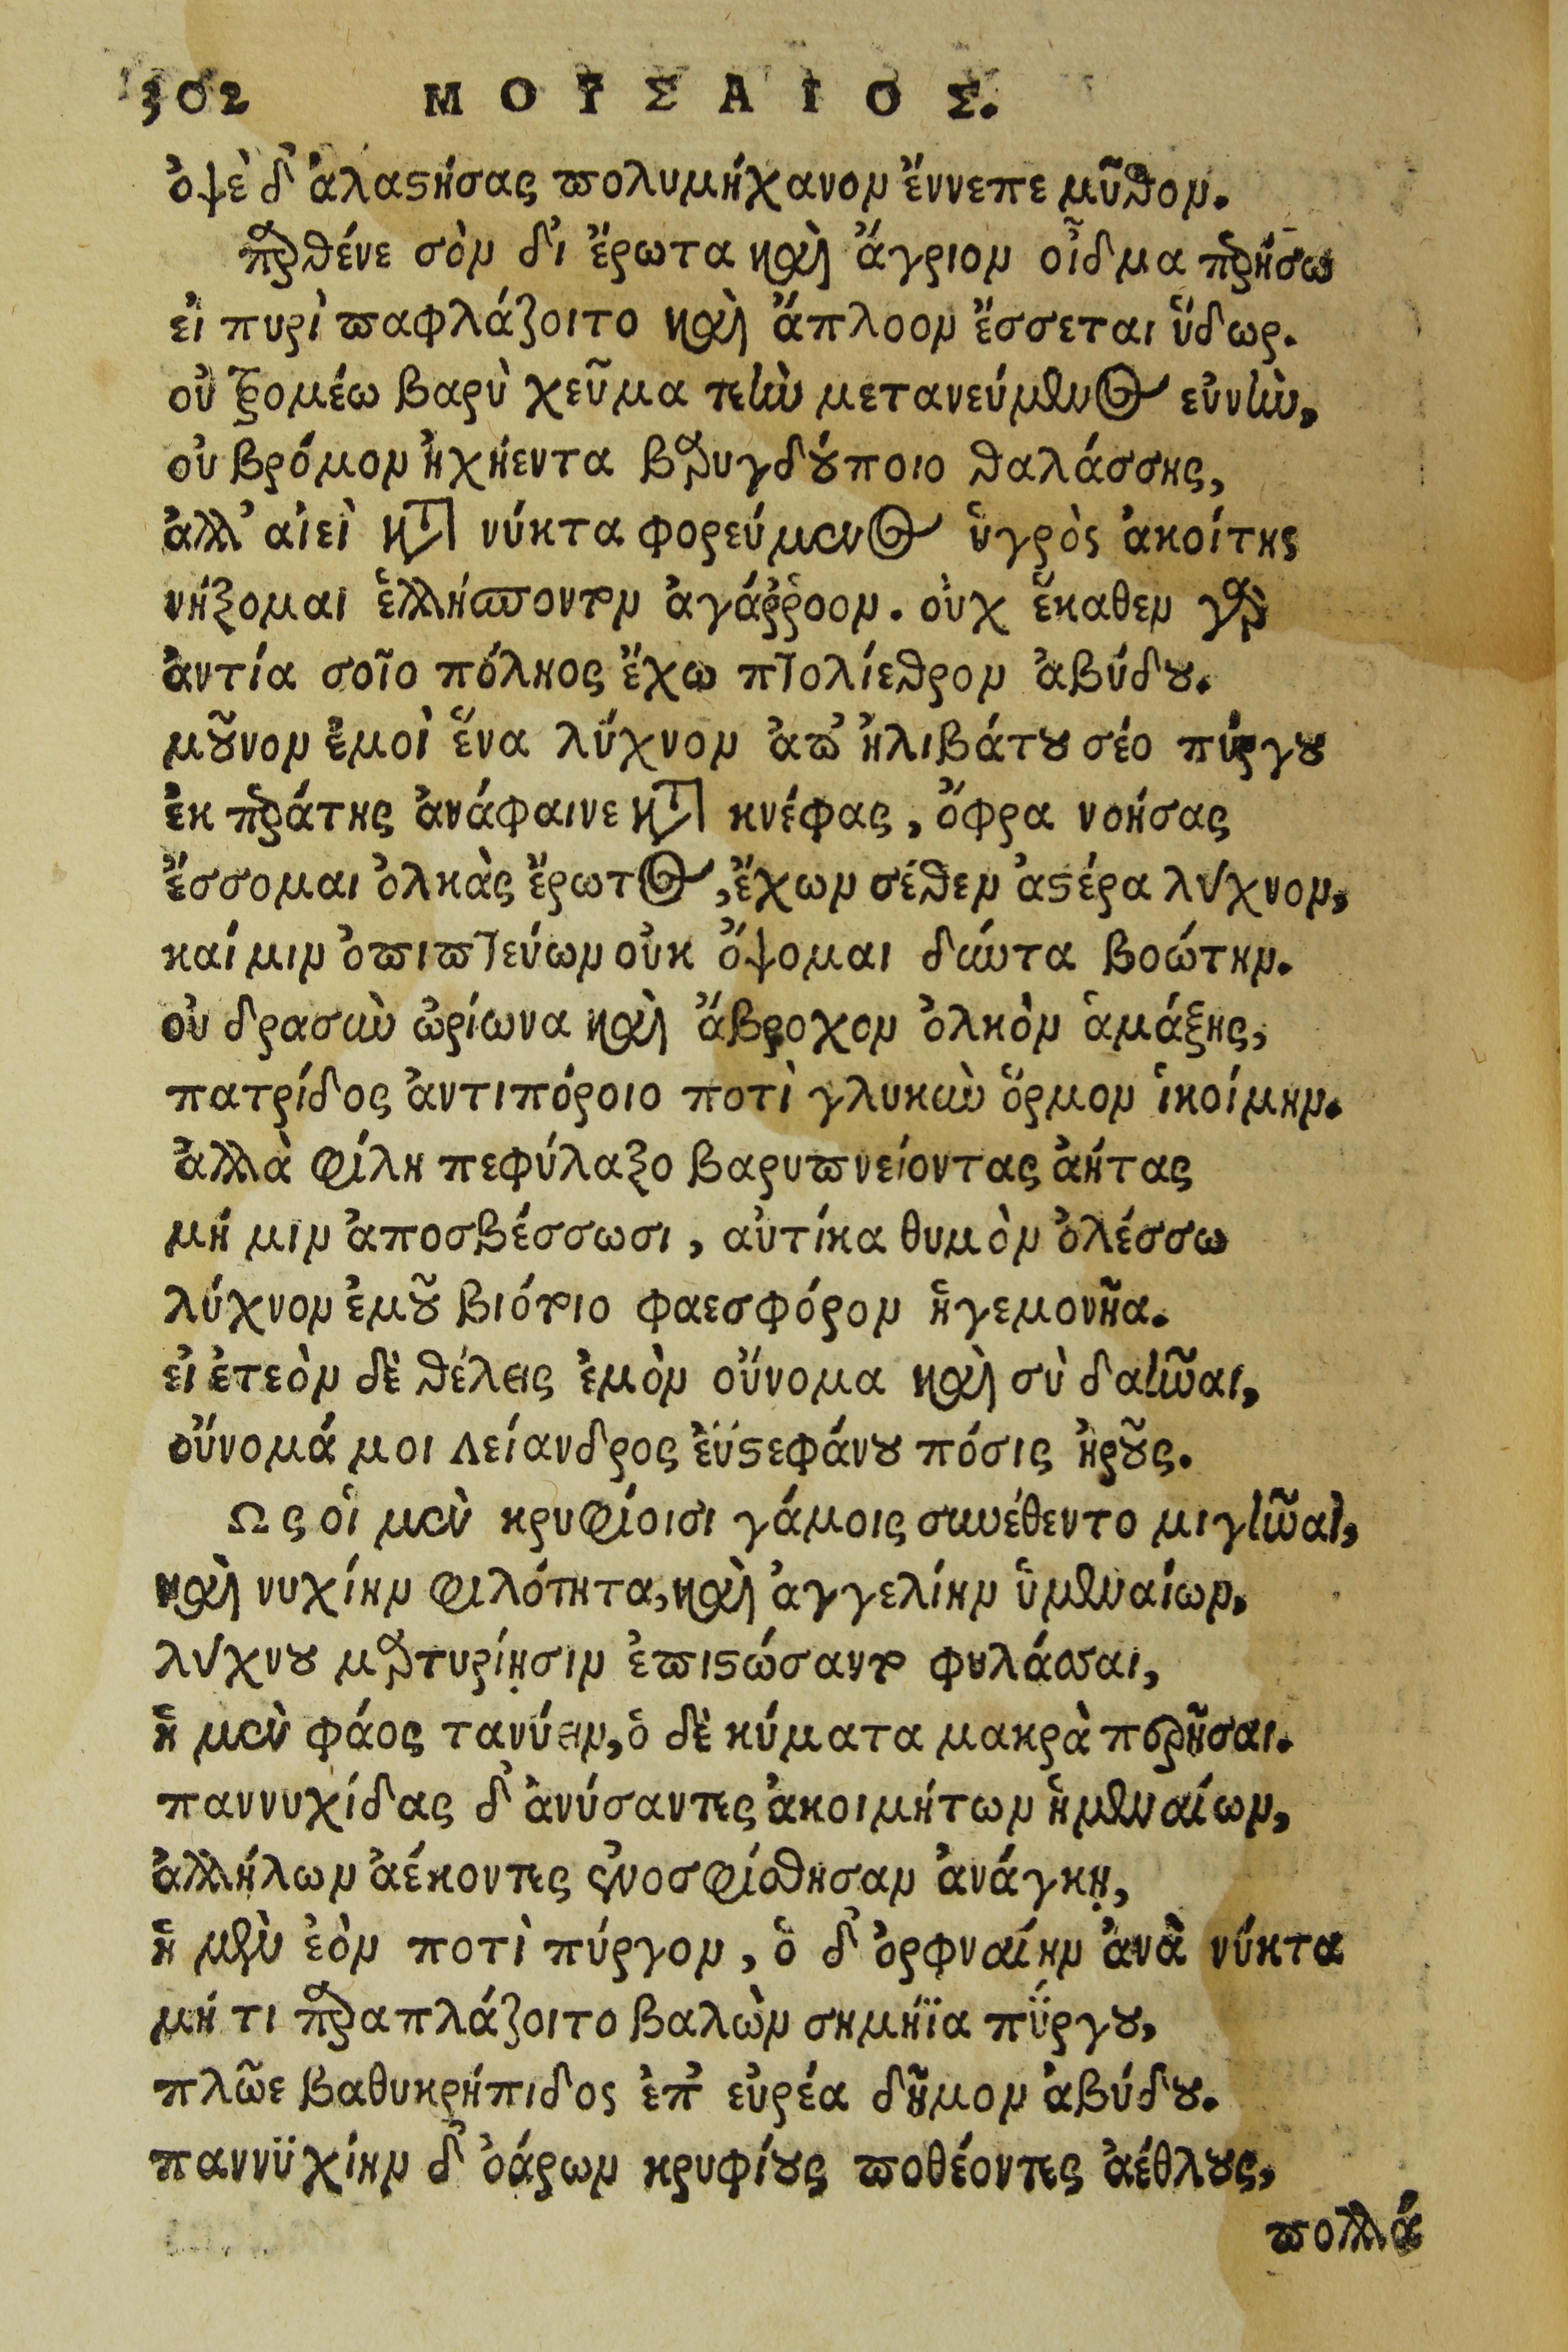 302 ΜΟΥΣΑΙΟΣ.
ὀψὲ δ' ἀλαστήσας πολυμήχανον ἔννεπε μῦθον.
παρθένε σὸν δι ἔρωτα καὶ ἄγριον οἶδμα πρήσω
εἰ πυρὶ παφλάζοιτο καὶ ἄπλοον ἔσσεται ὕδωρ.
οὐ τρομέω βαρὺ χεῦμα τεὴν μετανεύμενος εὐνὴν,
οὐ βρόμον ἠχήεντα βαρυγδούποιο θαλάσσης,
ἀλλ' αἰεὶ κατὰ νύκτα φορεύμενος ὑγρὸς ἀκοίτης
νήξομαι ἑλλήσποντον ἀγάῤῥοον. οὐχ ἕκαθεν γὰρ
ἀντία σοῖο πόληος ἔχω πτολίεθρον ἀβύδου.
μοῦνον ἐμοὶ ἕνα λύχνον ἀπ' ἠλιβάτου σέο πύργου
ἐκ πράτης ἀνάφαινε κατὰ κνέφας, ὄφρα νοήσας
ἔσσομαι ὁλκὰς ἔρωτος, ἔχων σέθεν ἀστέρα λύχνον,
καί μιν ὀπιπτεύων οὐκ ὄψομαι δύντα βοώτην.
οὐ δρασὺν ὠρίωνα καὶ ἄβροχον ὁλκὸν ἁμάξης,
πατρίδος ἀντιπόροιο ποτὶ γλυκὺν ὅρμον ἱκοίμην.
ἀλλὰ φίλη πεφύλαξο βαρυπνείοντας ἀήτας
μή μιν ἀποσβέσσωσι, αὐτίκα θυμὸν ὀλέσσω
λύχνον ἐμοῦ βιότοιο φαεσφόρον ἡγεμονῆα.
εἰ ἐτεὸν δὲ θέλεις ἐμὸν οὔνομα καὶ σὺ δαῆναι,
οὔνομά μοι Λείανδρος ἐϋστεφάνου πόσις ἡροῦς.
Ως οἱ μὲν κρυφίοισι γάμοις συνέθεντο μιγῆναι,
καὶ νυχίην φιλότητα, καὶ ἀγγελίην ὑμεναίων,
λύχνου μαρτυρίῃσιν ἐπιστώσαντο φυλάσσαι,
ἡ μὲν φάος τανύειν, ὁ δὲ κύματα μακρὰ περῆσαι.
παννυχίδας δ' ἀνύσαντες ἀκοιμήτων ἡμεναίων,
ἀλλήλων ἀέκοντες ἐνοσφίσθησαν ἀνάγκῃ,
ἡ μὲν ἑὸν ποτὶ πύργον, ὁ δ' ὀρφναίην ἀνὰ νύκτα
μή τι παραπλάζοιτο βαλὼν σημήϊα πύργου,
πλῶε βαθυκρήπιδος ἐπ' εὐρέα δῆμον ἀβύδου.
παννϋχίην δ' ὀάρων κρυφίους ποθέοντες ἀέθλους,
πολλά